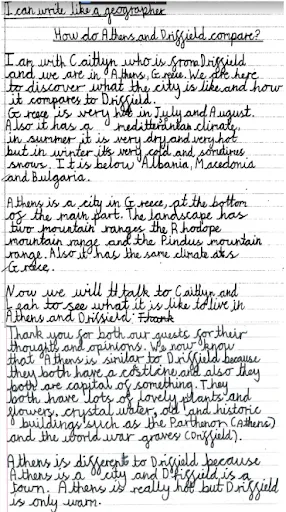 I can write like a geographer
How do Athens and Driffield compare?
I am with Caitlyn who is from Driffield
and we are in Athens, Greece. We are here
to discover what the city is like and how
it compares to Driffield.
Greece is very hot in July and August.
Also it has a mediterranean climate,
in summer it is very dry and very hot
but in winter it's very cold and sometimes
snows. It is below Albania, Macedonia
and Bulgaria.
Athens is a city in Greece, at the bottom
of the main part. The landscape has
two mountain ranges the Rhodope
mountain range and the Pindus mountain
range. Also it has the same climate as
Greece.
Now we will talk to Caitlyn and
to see what it is like to live in
Athens and Driffield. Thank
Thank you for both our guests for their
thoughts and opinions. We now know
that Athens is similar to Driffield because
they both have a costline and also they
both are capital of something. They
both have lots of lovely plants and
flowers, crystal water, old and historic
buildings such as the Parthenon (Athens)
and the world war graves (Driffield).
Athens is different to Driffield because
Athens is a city and Driffield is a
town. Athens is really hot but Driffield
is only warm.